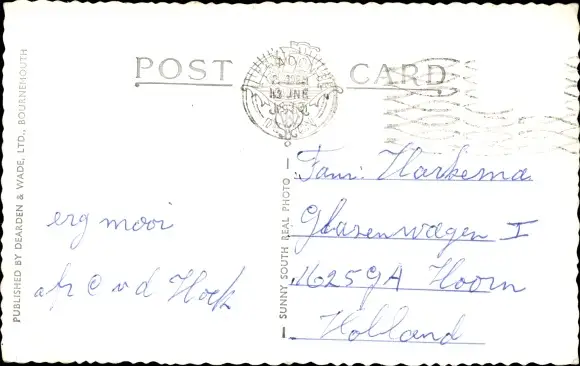 POST CARD
PUBLISHED BY DEARDEN & WADE, LTD., BOURNEMOUTH
SUNNY SOUTH REAL PHOTO
erg mooi
C v d Hoek
Fam: Harkema
Glazenwagen I
1625GA Hoorn
Holland